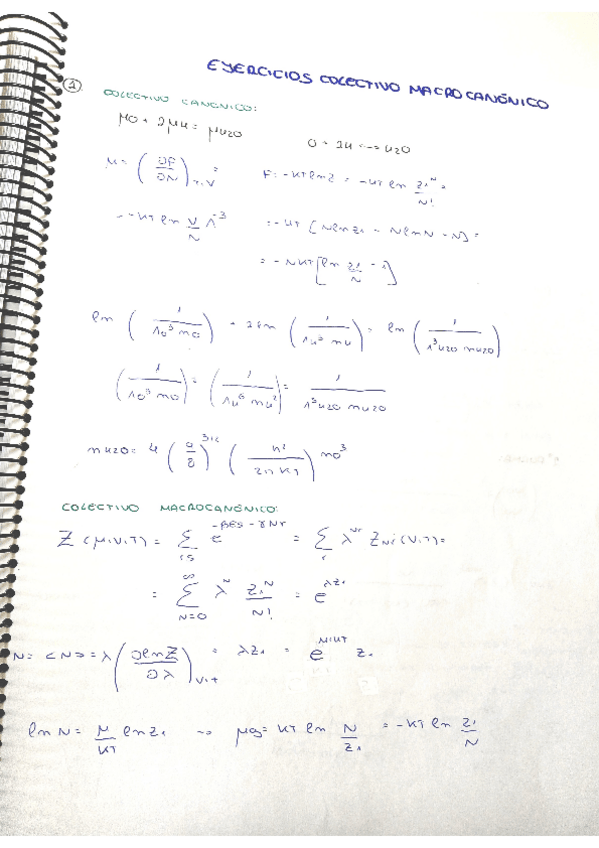 EJERCICIOS COLECTIVO MACROCANÓNICO
① COLECTIVO CANÓNICO:
μO + 2μH = μH2O
O + 2H <--> H2O
μ = (∂F/∂N)T,V =
F = -KT ln Z = -KT ln Z1^N/N! =
= -KT ln V/N Λ^-3
= -KT [N ln Z1 - N ln N - N] =
= -NKT [ln Z1/N - 1]
ln (1/ΛO^3 nO) + 2 ln (1/ΛH^3 nH) = ln (1/Λ^3H2O nH2O)
(1/ΛO^3 nO) = (1/ΛH^6 nH^2) = 1/Λ^3H2O nH2O
nH2O = 4 (9/8)^3/2 (h^2/2π KT) nO^3
COLECTIVO MACROCANÓNICO:
Z (μ,V,T) = Σ e^-βEs - γNr = Σr λ^Nr ZNr (V,T) =
= Σ∞N=0 λ^N Z1^N/N! = e^λZ1
N = <N> = λ (∂lnZ/∂λ)V,T = λZ1 = e^μ/KT Z1
ln N = μ/KT ln Z1 → μg = KT ln N/Z1 = -KT ln Z1/N